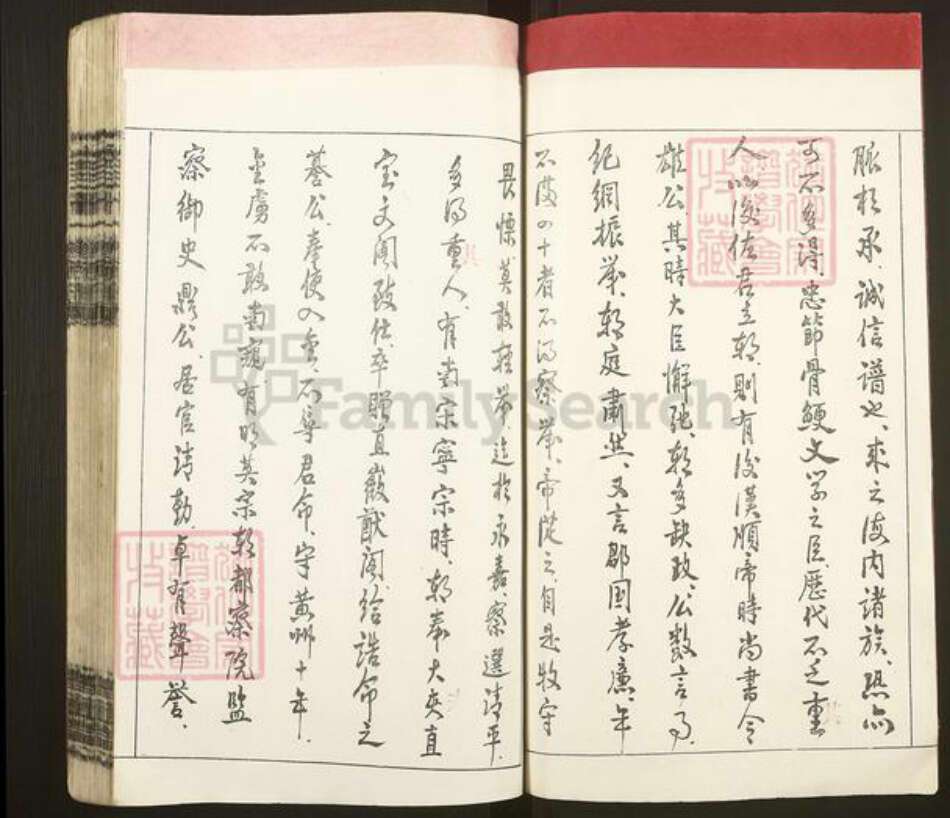 脈相承、誠信譜也、求之海内諸族、恐亦
可不多得、忠節骨鯁文学之臣、歷代不乏重
人、以後佐君立朝、則有後漢順帝時尚書令
雄公、其時大臣懈弛、朝多缺政、公数言事、
紀網振举、朝庭肅然、又言郡国孝廉、年
不歲四十者不得察举、帝從之、自是牧守
畏慄莫敢輕举、迄於永嘉、察選清平、
多得重人、有南宋寧宗時、朝奉大夫直
宝文阁致仕、卒贈直徽猷阁、给诰命之
綦公、奉使入金、不辱君命、守黄州十年、
金虜不敢南窺、有明英宗朝都察院監
察御史鼎公、居官清勤、卓有聲誉、
FamilySearch